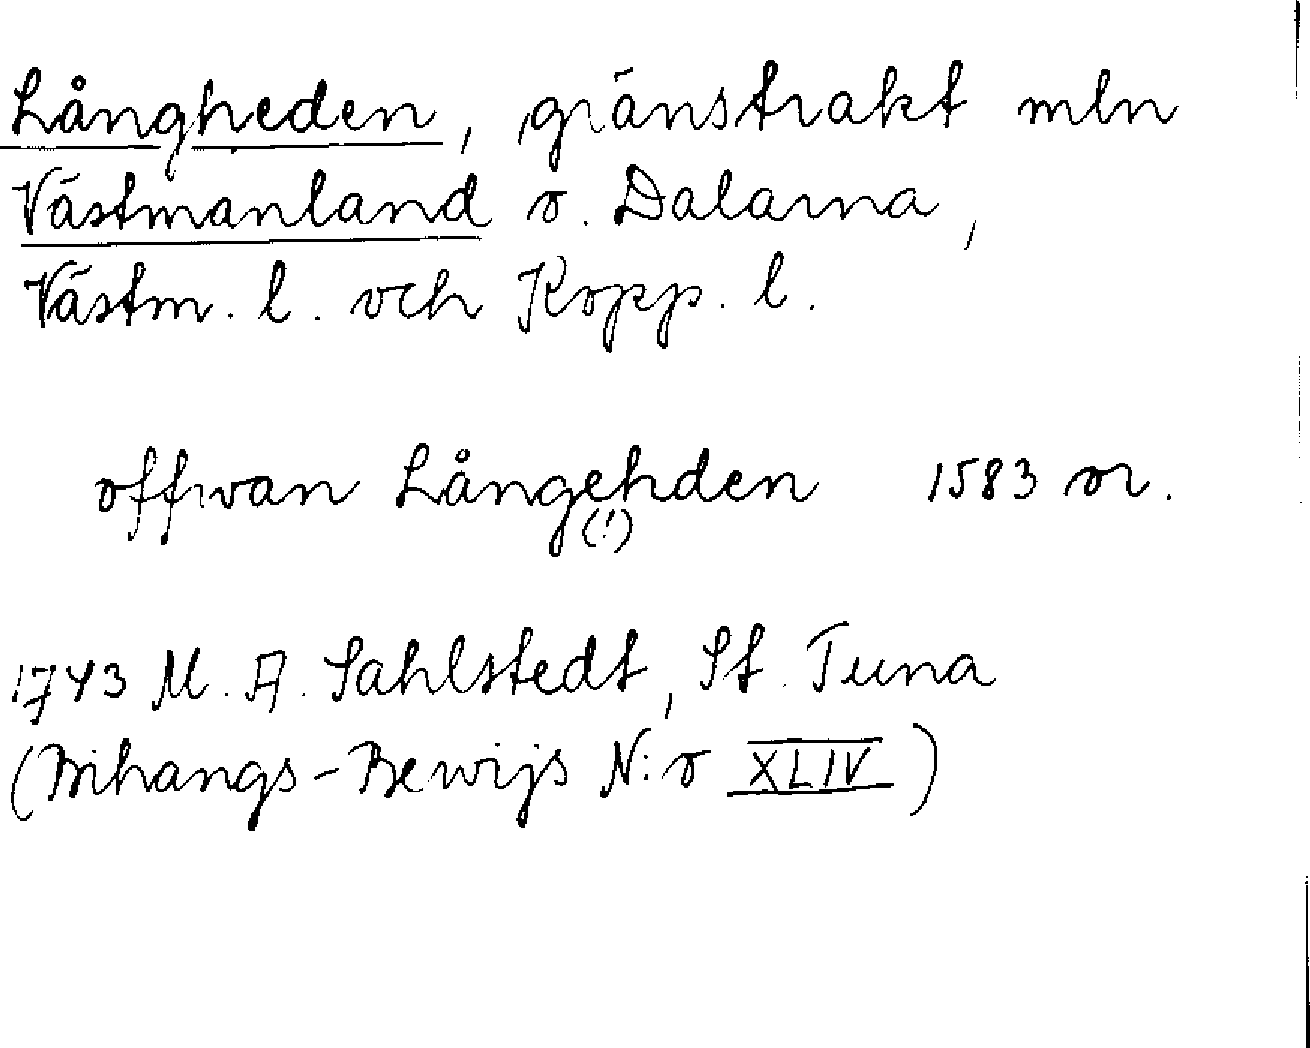 Långheden, gränstrakt mln
Västmanland o. Dalarna,
Västm. l. och Kopp. l.
offwan Långehden 1583 or.
(!)
1743 M. A. Sahlstedt, St. Tuna
(Bihangs-Bewijs N:o XLIV)